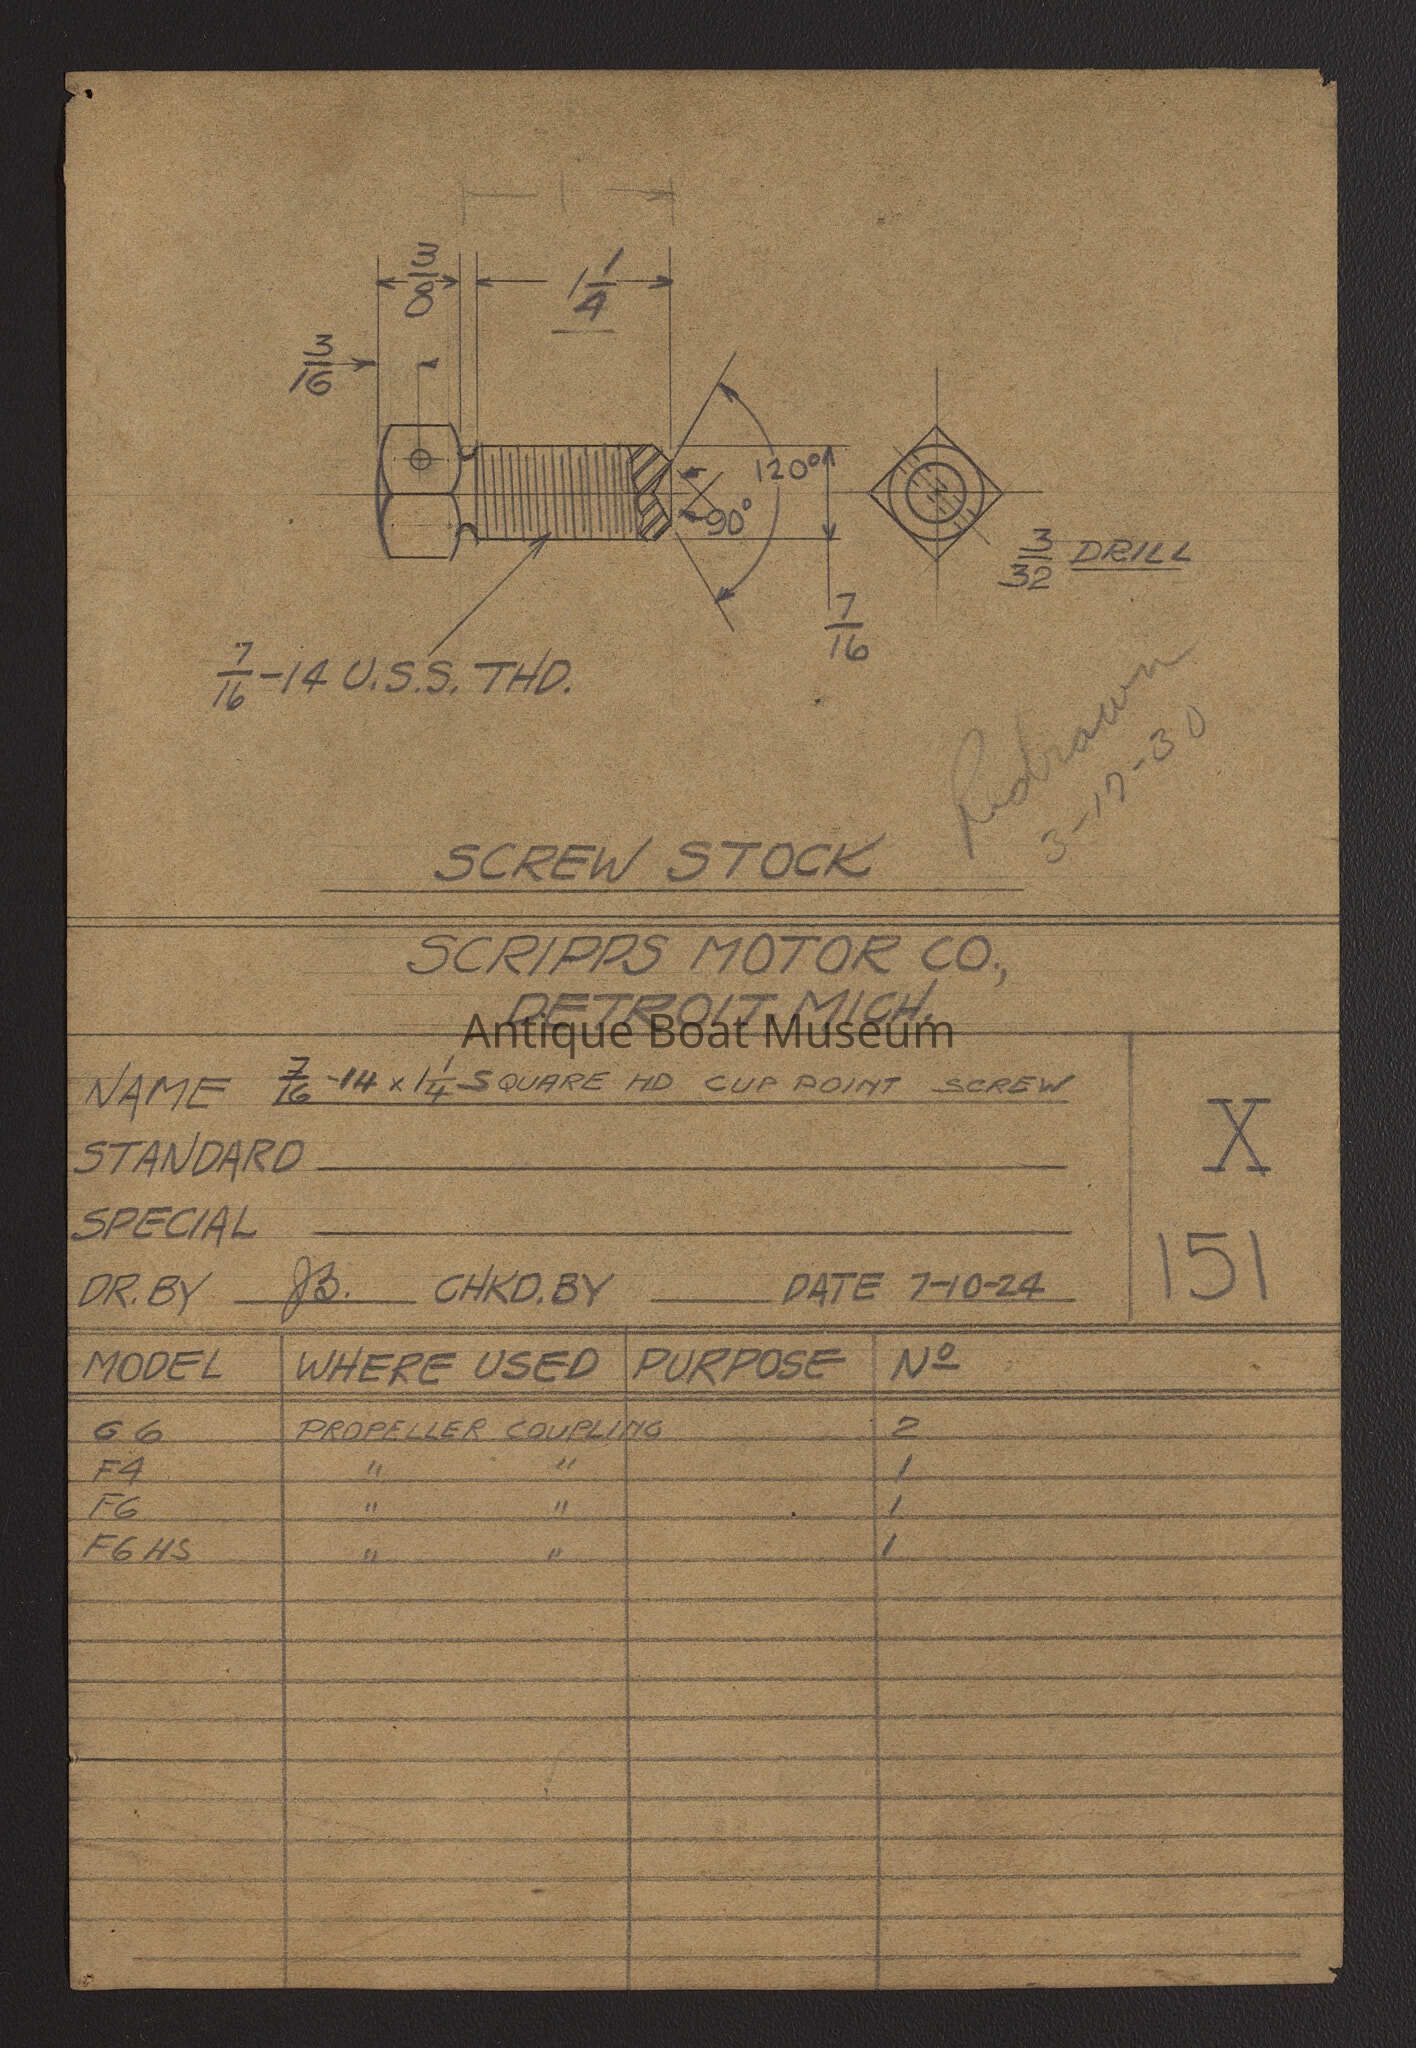 1
3/8
1 1/4
3/16
120°
90°
3/32 DRILL
7/16
7/16-14 U.S.S. THD.
Redrawn
3-17-30
SCREW STOCK
SCRIPPS MOTOR CO.,
DETROIT MICH.
Antique Boat Museum
NAME 7/16-14 x 1 1/4 SQUARE HD CUP POINT SCREW
STANDARD
SPECIAL
X
151
DR. BY JB. CHKD. BY DATE 7-10-24
MODEL WHERE USED PURPOSE Nº
G6 PROPELLER COUPLING 2
F4 " " 1
F6 " " 1
F6 HS " " 1